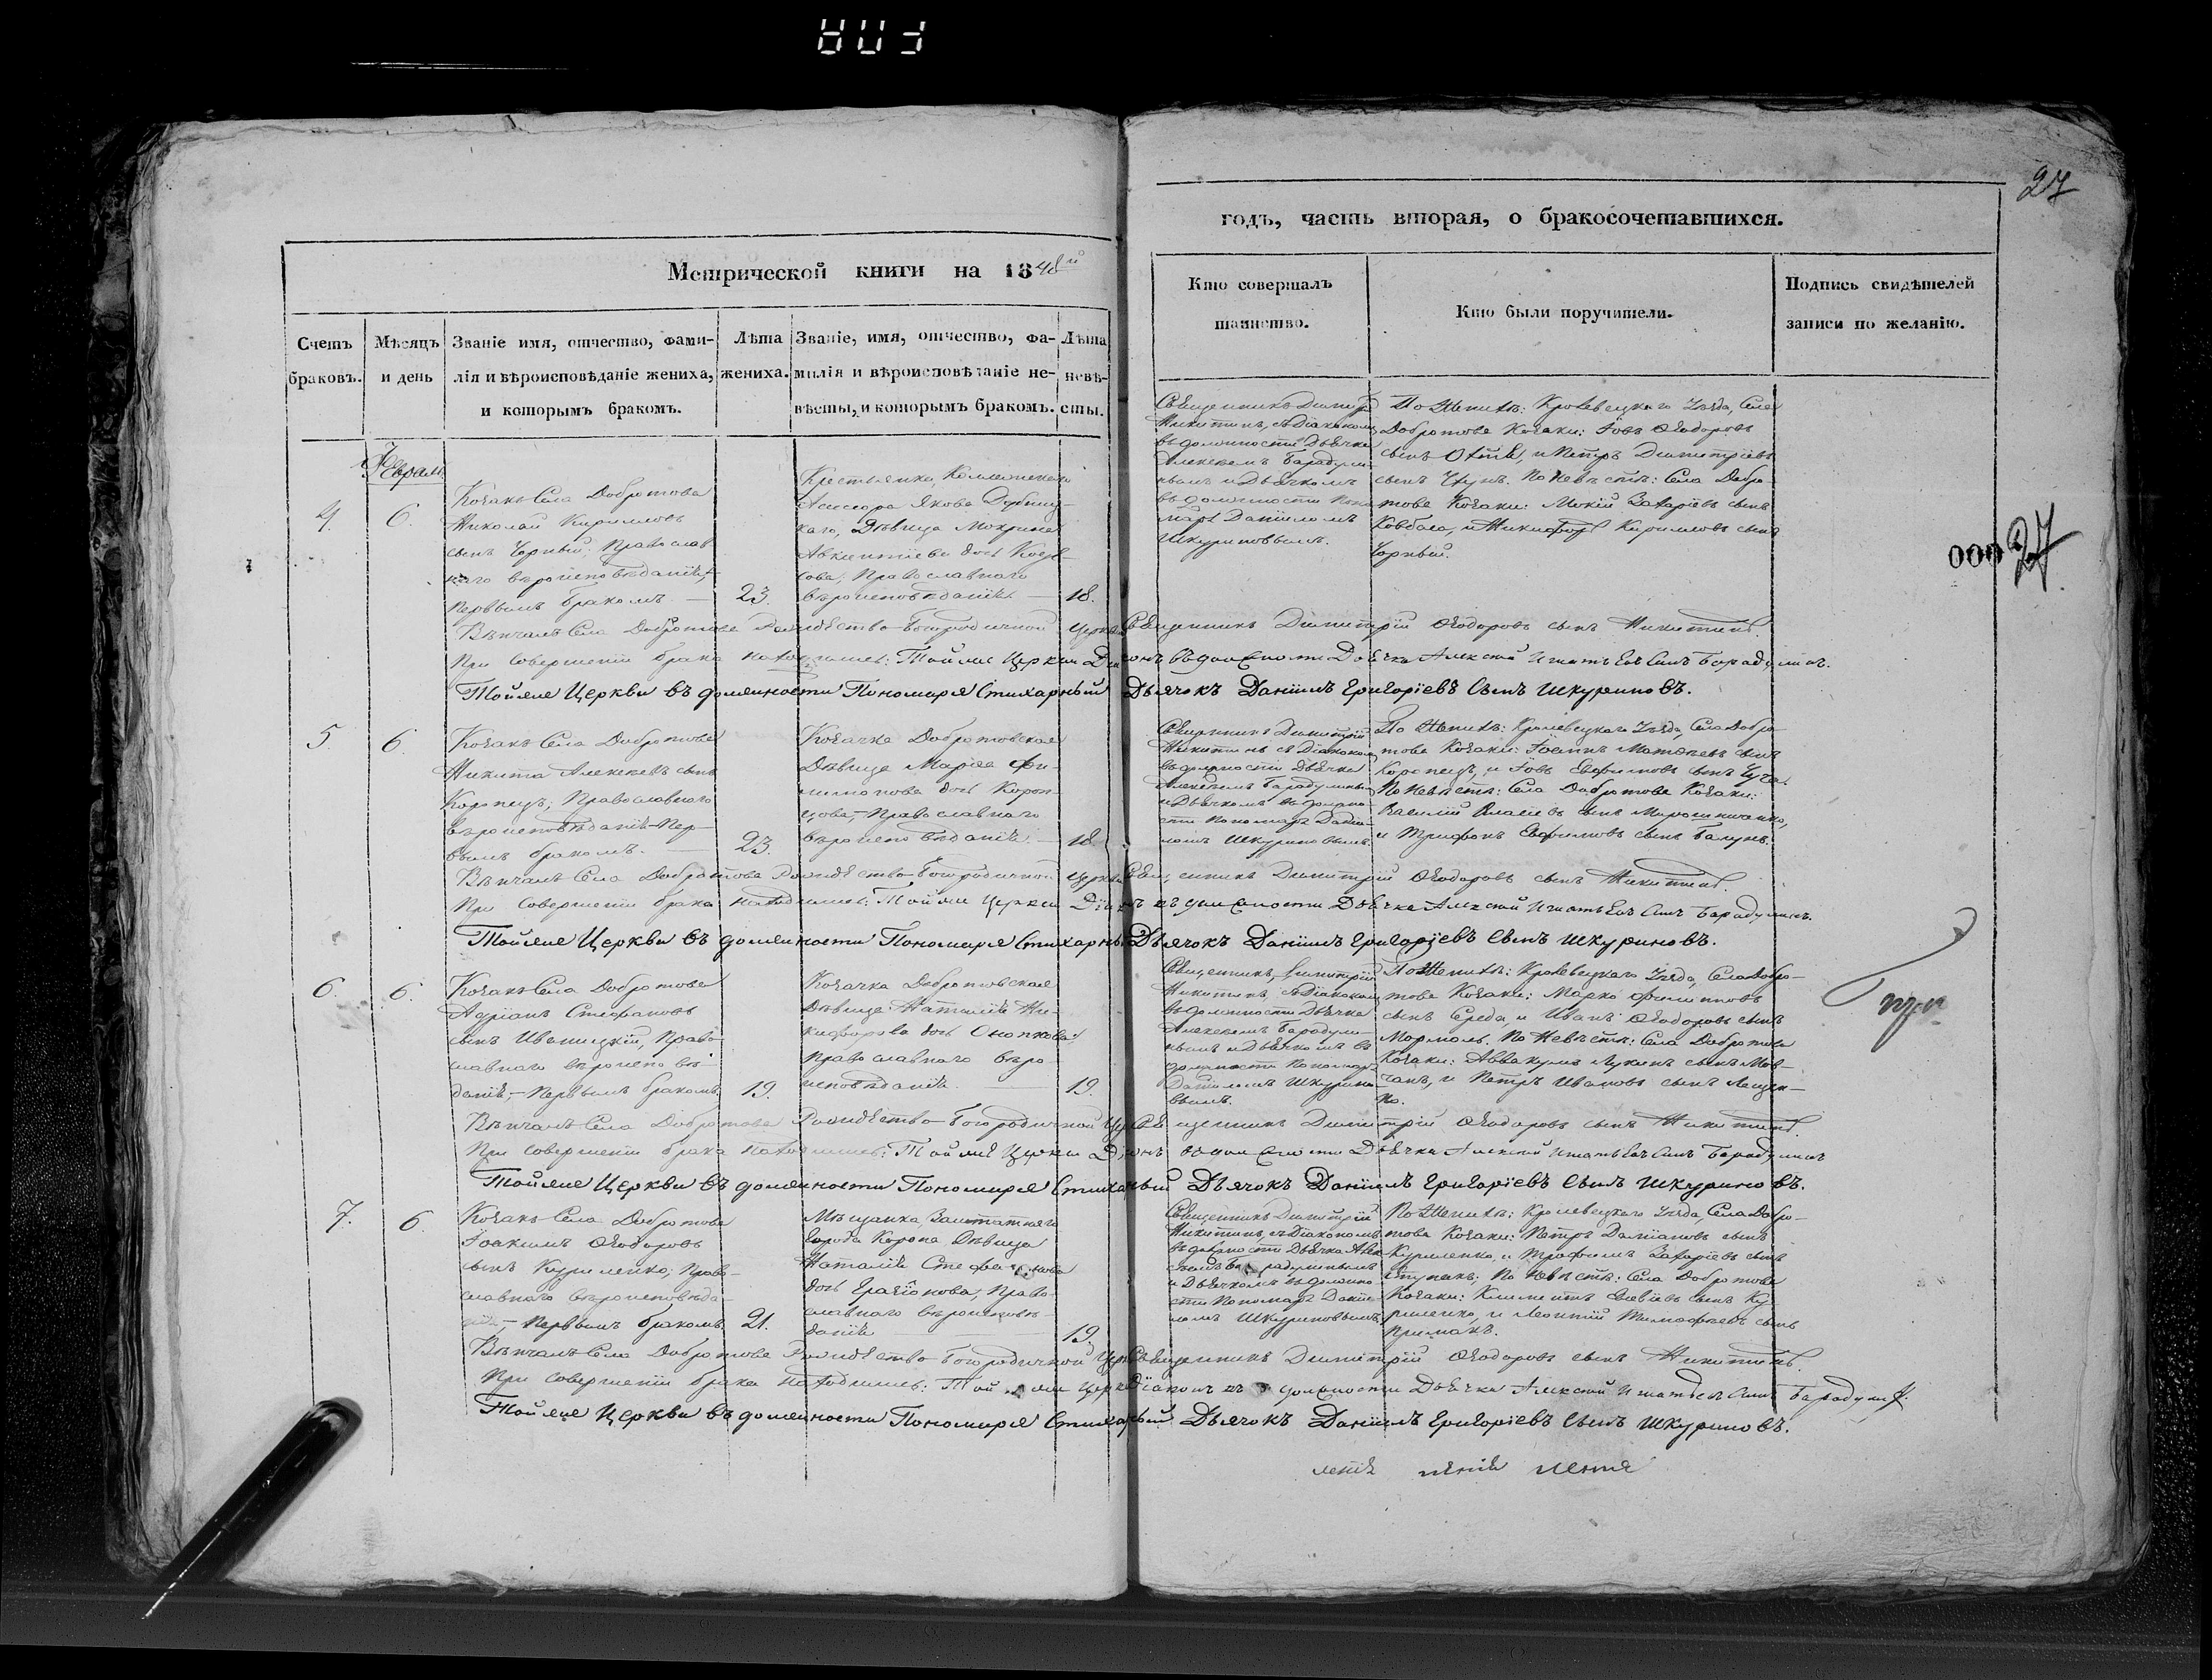 27
Метрической книги на 1848й
годъ, часть вторая, о бракосочетавшихся.
Счетъ браковъ.
Мѣсяцъ и день
Званіе имя, отчество, фами-
лія и вѣроисповѣданіе жениха,
и которымъ бракомъ.
Лѣта жениха.
Званіе, имя, отчество, фа-
милія и вѣроисповѣданіе не-
вѣсты, и которымъ бракомъ.
Лѣта невѣ-
сты.
Кто совершалъ
таинство.
Кто были поручители.
Подпись свидѣтелей
записи по желанію.
4.
6.
Козакъ Села Добротова
Николай Кирилловъ
сынъ Чорный, Православ
наго вѣроисповѣданія,
первымъ бракомъ.
23.
Крестьянка, Коллежскаго
Асессора Якова
Дѣвица Мокрина
дочь
Православнаго
вѣроисповѣданія.
18.
Священникъ Димитрій
Никитинъ, съ Діакономъ
въ должности Дьячка
Алексѣемъ Барадули-
нымъ и Дьячкомъ
въ должности Поно
маря Даніиломъ
Шкуриновымъ.
По Женихѣ: Кролевецкаго Уѣзда, Села
Добротова Козаки: Іовъ Ѳеодоровъ
сынъ и Петръ Димитріевъ
сынъ По Невѣстѣ: Села Добро-
това Козаки: Мокій Захаріевъ сынъ
Ковбаса, и Никифоръ Кирилловъ сынъ
Чорный.
000 27
Вѣнчалъ Села Добротова Рождество-Богородичной Церкви Священникъ Димитрій Ѳеодоровъ сынъ Никитинъ.
При совершеніи брака находились: Той же Церкви Діаконъ въ должности Дьячка Алексѣй Игнатьевъ сынъ Барадулинъ.
Той же Церкви въ должности Пономаря Стихарный Дьячокъ Даніилъ Григоріевъ сынъ Шкуриновъ.
5.
6.
Козакъ Села Добротова
Никита Алексѣевъ сынъ
Коропецъ, Православнаго
вѣроисповѣданія, Пер-
вымъ бракомъ.
23.
Козачка Добротовская
Дѣвица Марія Фи-
лимонова дочь Короп-
цова, Православнаго
вѣроисповѣданія.
18.
Священникъ Димитрій
Никитинъ съ Діакономъ
въ должности Дьячка
Алексѣемъ Барадулинымъ
и Дьячкомъ въ должно-
сти Пономаря Даніи-
ломъ Шкуриновымъ.
По Женихѣ: Кролевецкаго Уѣзда, Села Добро-
това Козаки: Іоаннъ Матѳеевъ сынъ
Коропецъ, и Іовъ Евфимовъ сынъ
По Невѣстѣ: Села Добротова Козаки:
Василій Власіевъ сынъ Мирошниченко,
и Трифонъ Евфимовъ сынъ
Вѣнчалъ Села Добротова Рождество-Богородичной Церкви Священникъ Димитрій Ѳеодоровъ сынъ Никитинъ.
При совершеніи брака находились: Той же Церкви Діаконъ въ должности Дьячка Алексѣй Игнатьевъ сынъ Барадулинъ.
Той же Церкви въ должности Пономаря Стихарный Дьячокъ Даніилъ Григоріевъ сынъ Шкуриновъ.
6.
6.
Козакъ Села Добротова
Адріанъ Стефановъ
сынъ Иваницкій, Право-
славнаго вѣроисповѣ-
данія, Первымъ бракомъ.
19.
Козачка Добротовская
Дѣвица Наталія Ни-
кифорова дочь
Православнаго вѣро
исповѣданія.
19.
Священникъ Димитрій
Никитинъ, съ Діакономъ
въ должности Дьячка
Алексѣемъ Барадули-
нымъ и Дьячкомъ въ
должности Пономаря
Даніиломъ Шкурино-
вымъ.
По Женихѣ: Кролевецкаго Уѣзда, Села Добро-
това Козаки: Марко Филиповъ
сынъ Середа, и Иванъ Ѳеодоровъ сынъ
По Невѣстѣ: Села Добротова
Козаки: Аввакумъ Лукинъ сынъ Мов-
чанъ, и Петръ Ивановъ сынъ Лещен-
ко.
Вѣнчалъ Села Добротова Рождество-Богородичной Церкви Священникъ Димитрій Ѳеодоровъ сынъ Никитинъ.
При совершеніи брака находились: Той же Церкви Діаконъ въ должности Дьячка Алексѣй Игнатьевъ сынъ Барадулинъ
Той же Церкви въ должности Пономаря Стихарный Дьячокъ Даніилъ Григоріевъ сынъ Шкуриновъ.
7.
6.
Козакъ Села Добротова
Іоакимъ Ѳеодоровъ
сынъ Куриленко, Право-
славнаго вѣроисповѣда-
нія, Первымъ бракомъ.
21.
Мѣщанка, Заштатнаго
города Коропа Дѣвица
Наталія Стефанова
дочь Право-
славнаго вѣроисповѣ-
данія
19.
Священникъ Димитрій
Никитинъ, съ Діакономъ
въ должности Дьячка Алек
сѣемъ Барадулинымъ
и Дьячкомъ въ должно-
сти Пономаря Даніи-
ломъ Шкуриновымъ.
По Женихѣ: Кролевецкаго Уѣзда, Села Добро-
това Козаки: Петръ Даміановъ сынъ
Куриленко, и Трофимъ Захаріевъ сынъ
Ступакъ; По Невѣстѣ: Села Добротова
Козаки: Климентъ сынъ Ку-
риленко, и Леонтій Тимофѣевъ сынъ
Примакъ.
Вѣнчалъ Села Добротова Рождество-Богородичной Церкви Священникъ Димитрій Ѳеодоровъ сынъ Никитинъ.
При совершеніи брака находились: Той же Церкви Діаконъ въ должности Дьячка Алексѣй Игнатьевъ сынъ Барадулинъ.
Той же Церкви въ должности Пономаря Стихарный Дьячокъ Даніилъ Григоріевъ сынъ Шкуриновъ.